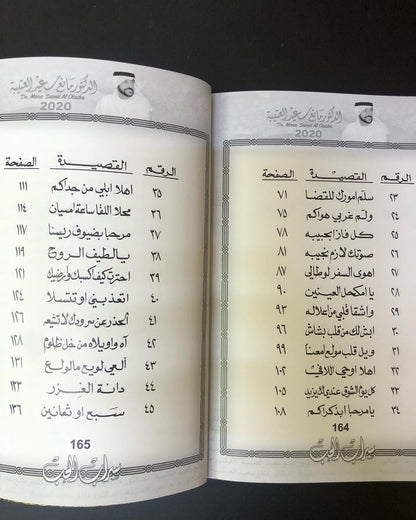 الدكتور مانع سعيد العتيبة
Dr. Mana Saeed Al Otaiba
2020
الرقم القصيدة الصفحة
٢٣ سلم امورك للقضا ٧١
٢٤ ولم غربي هواكم ٧٥
٢٥ كل فاز بحبيبه ٧٨
٢٦ صوتك لازم نجيبه ٨١
٢٧ اهوى السفر لوطالي ٨٧
٢٨ يا امكحل العينين ٩٠
٢٩ واشقا قلبي من علاله ٩٣
٣٠ ابش لك من قلب بشاش ٩٦
٣١ ويل قلب مولع امعنا ٩٩
٣٢ اهلا اوحي اللافي ١٠٢
٣٣ كل يوم الشوق عندي لك يزيد ١٠٥
٣٤ يا مرحبا ابذكراكم ١٠٨
164
سراب الحب
الدكتور مانع سعيد العتيبة
Dr. Mana Saeed Al Otaiba
2020
الرقم القصيدة الصفحة
٣٥ اهلا ابلي من جداكم ١١١
٣٦ محلا اللقا ساعة امسيان ١١٤
٣٧ مرحبا بضيوف ربينا ١١٧
٣٨ يا لطيف الروح ١١٩
٣٩ احترت كيف اكسبك وارضيك ١٢١
٤٠ اتعذبني او تتسلا ١٢٤
٤١ الحذر عن سرودك لا تشيعه ١٢٦
٤٢ آه واويلاه من خل ظلوم ١٢٨
٤٣ ألعي لويع مالولع ١٣١
٤٤ دانة الغزر ١٣٣
٤٥ سبع او ثمانين ١٣٦
165
سراب الحب